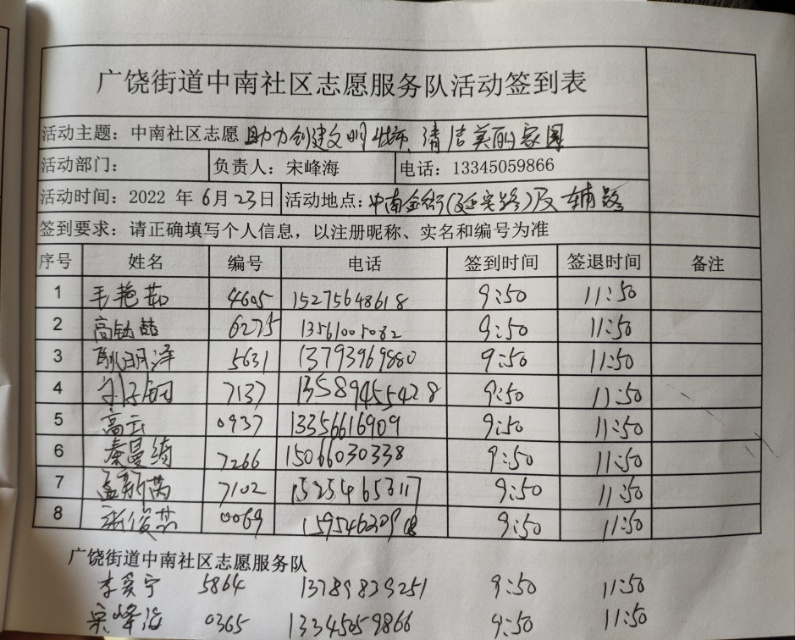 广饶街道中南社区志愿服务队活动签到表
活动主题：中南社区志愿 助力创建文明城市，清洁美丽家园
活动部门： 负责人：宋峰海 电话：13345059866
活动时间：2022 年 6月23日 活动地点：中南金街(延安路)及辅路
签到要求：请正确填写个人信息，以注册昵称、实名和编号为准
序号 姓名 编号 电话 签到时间 签退时间 备注
1 4605 15275648618 9:50 11:50
2 6275 13561005082 9:50 11:50
3 耿明洋 5631 13793969880 9:50 11:50
4 7137 13589455428 9:50 11:50
5 高云 0937 13356616909 9:50 11:50
6 秦曼绮 7266 15066030338 9:50 11:50
7 孟新茜 7102 15254653117 9:50 11:50
8 0069 9:50 11:50
广饶街道中南社区志愿服务队
李爱宁 5864 13789829251 9:50 11:50
宋峰海 0365 13345059866 9:50 11:50